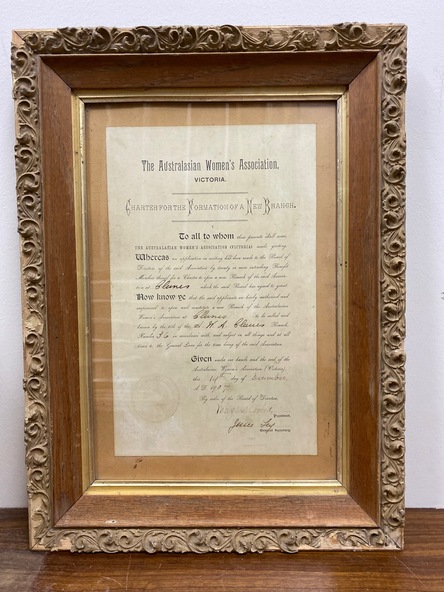 The Australasian Women's Association,
VICTORIA.
Charter for the Formation of a New Branch.
To all to whom these presents shall come
THE AUSTRALASIAN WOMEN'S ASSOCIATION (VICTORIA) sends greeting.
Whereas an application in writing hath been made to the Board of
Directors of the said Association by twenty or more intending Benefit
Members thereof for a Charter to open a new Branch of the said Associa-
tion at Clunes which the said Board has agreed to grant.
Now know ye that the said applicants are hereby authorised and
empowered to open and institute a new Branch of the Australasian
Women's Association at Clunes to be called and
known by the title of the A. W. A. Clunes Branch,
Number in connection with, and subject in all things and at all
times to the General Laws for the time being of the said Association.
Given under our hands and the seal of the
Australasian Women's Association (Victoria)
this 14th day of December,
A.D. 190
By order of the Board of Directors,
President.
General Secretary.